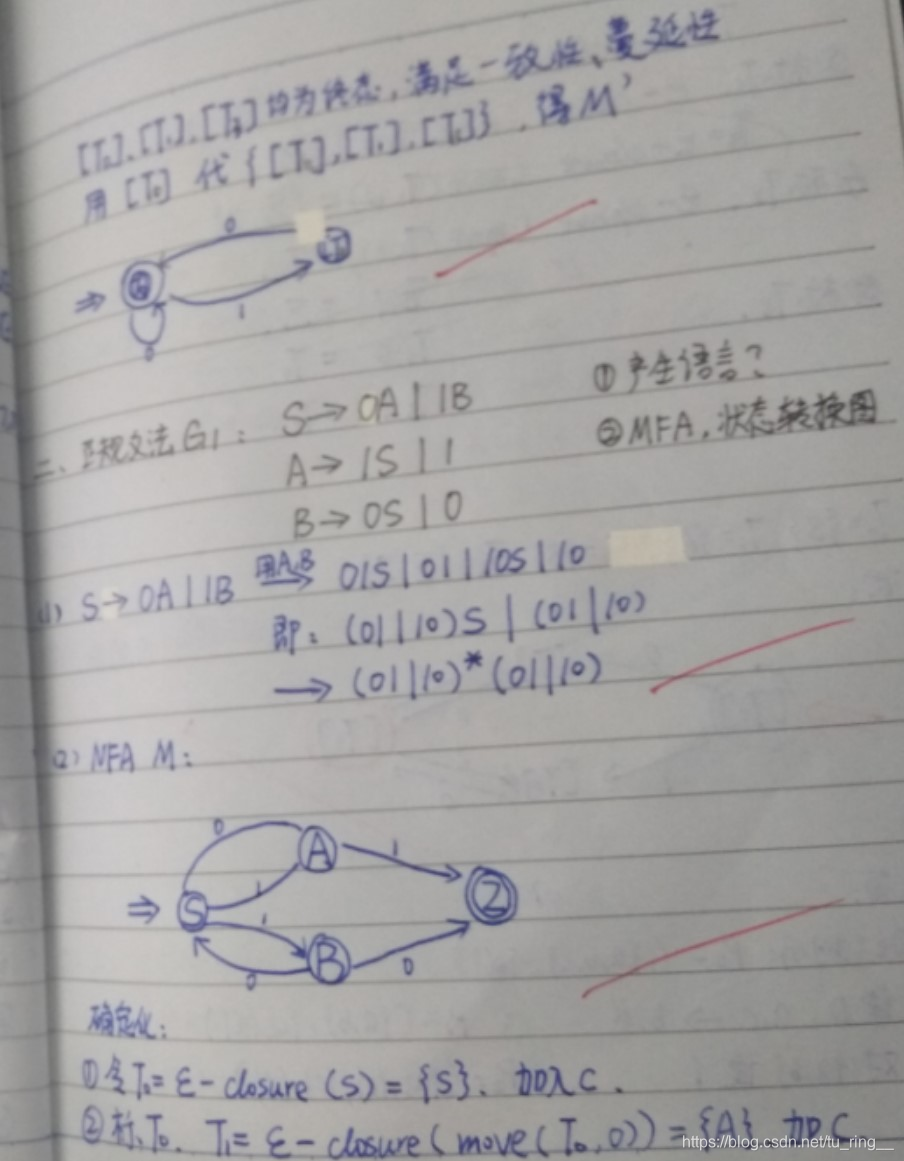 [T₀],[T₁],[T₃]均为终态,满足一致性、蔓延性
用 [T₀] 代 {[T₀],[T₁],[T₃]},得M'
0
⇒
1
0
二、正规文法G1: S→0A|1B ①产生语言?
A→1S|1 ②MFA,状态转换图
B→0S|0
(1) S→0A|1B 用A,B 01S|01|10S|10
即: (01|10)S | (01|10)
→ (01|10)*(01|10)
(2) NFA M:
0
A
1
1
⇒ S
Z
1
B
0
0
确定化:
①令T₀= ε-closure (S) = {S}. 加入C.
②标T₀. T₁= ε-closure(move(T₀,0)) = {A} 加C
https://blog.csdn.net/tu_ring__